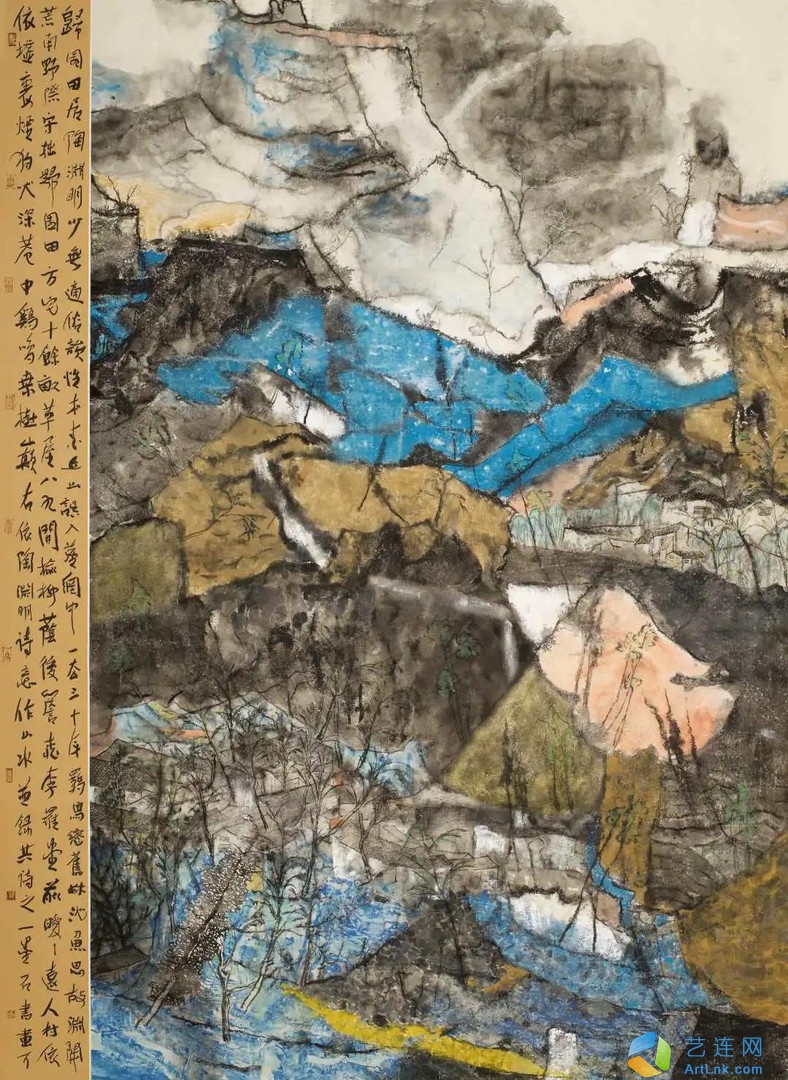 歸園田居陶淵明少無適俗韻性本愛丘山誤入塵網中一去三十年羈鳥戀舊林池魚思故淵開
荒南野際守拙歸園田方宅十餘畝草屋八九間榆柳蔭後簷桃李羅堂前曖〻遠人村依
依墟裏煙狗吠深巷中鷄鳴桑樹巔右依陶淵明詩意作山水並錄其詩之一墨石書
艺连网
ArtLnk.com